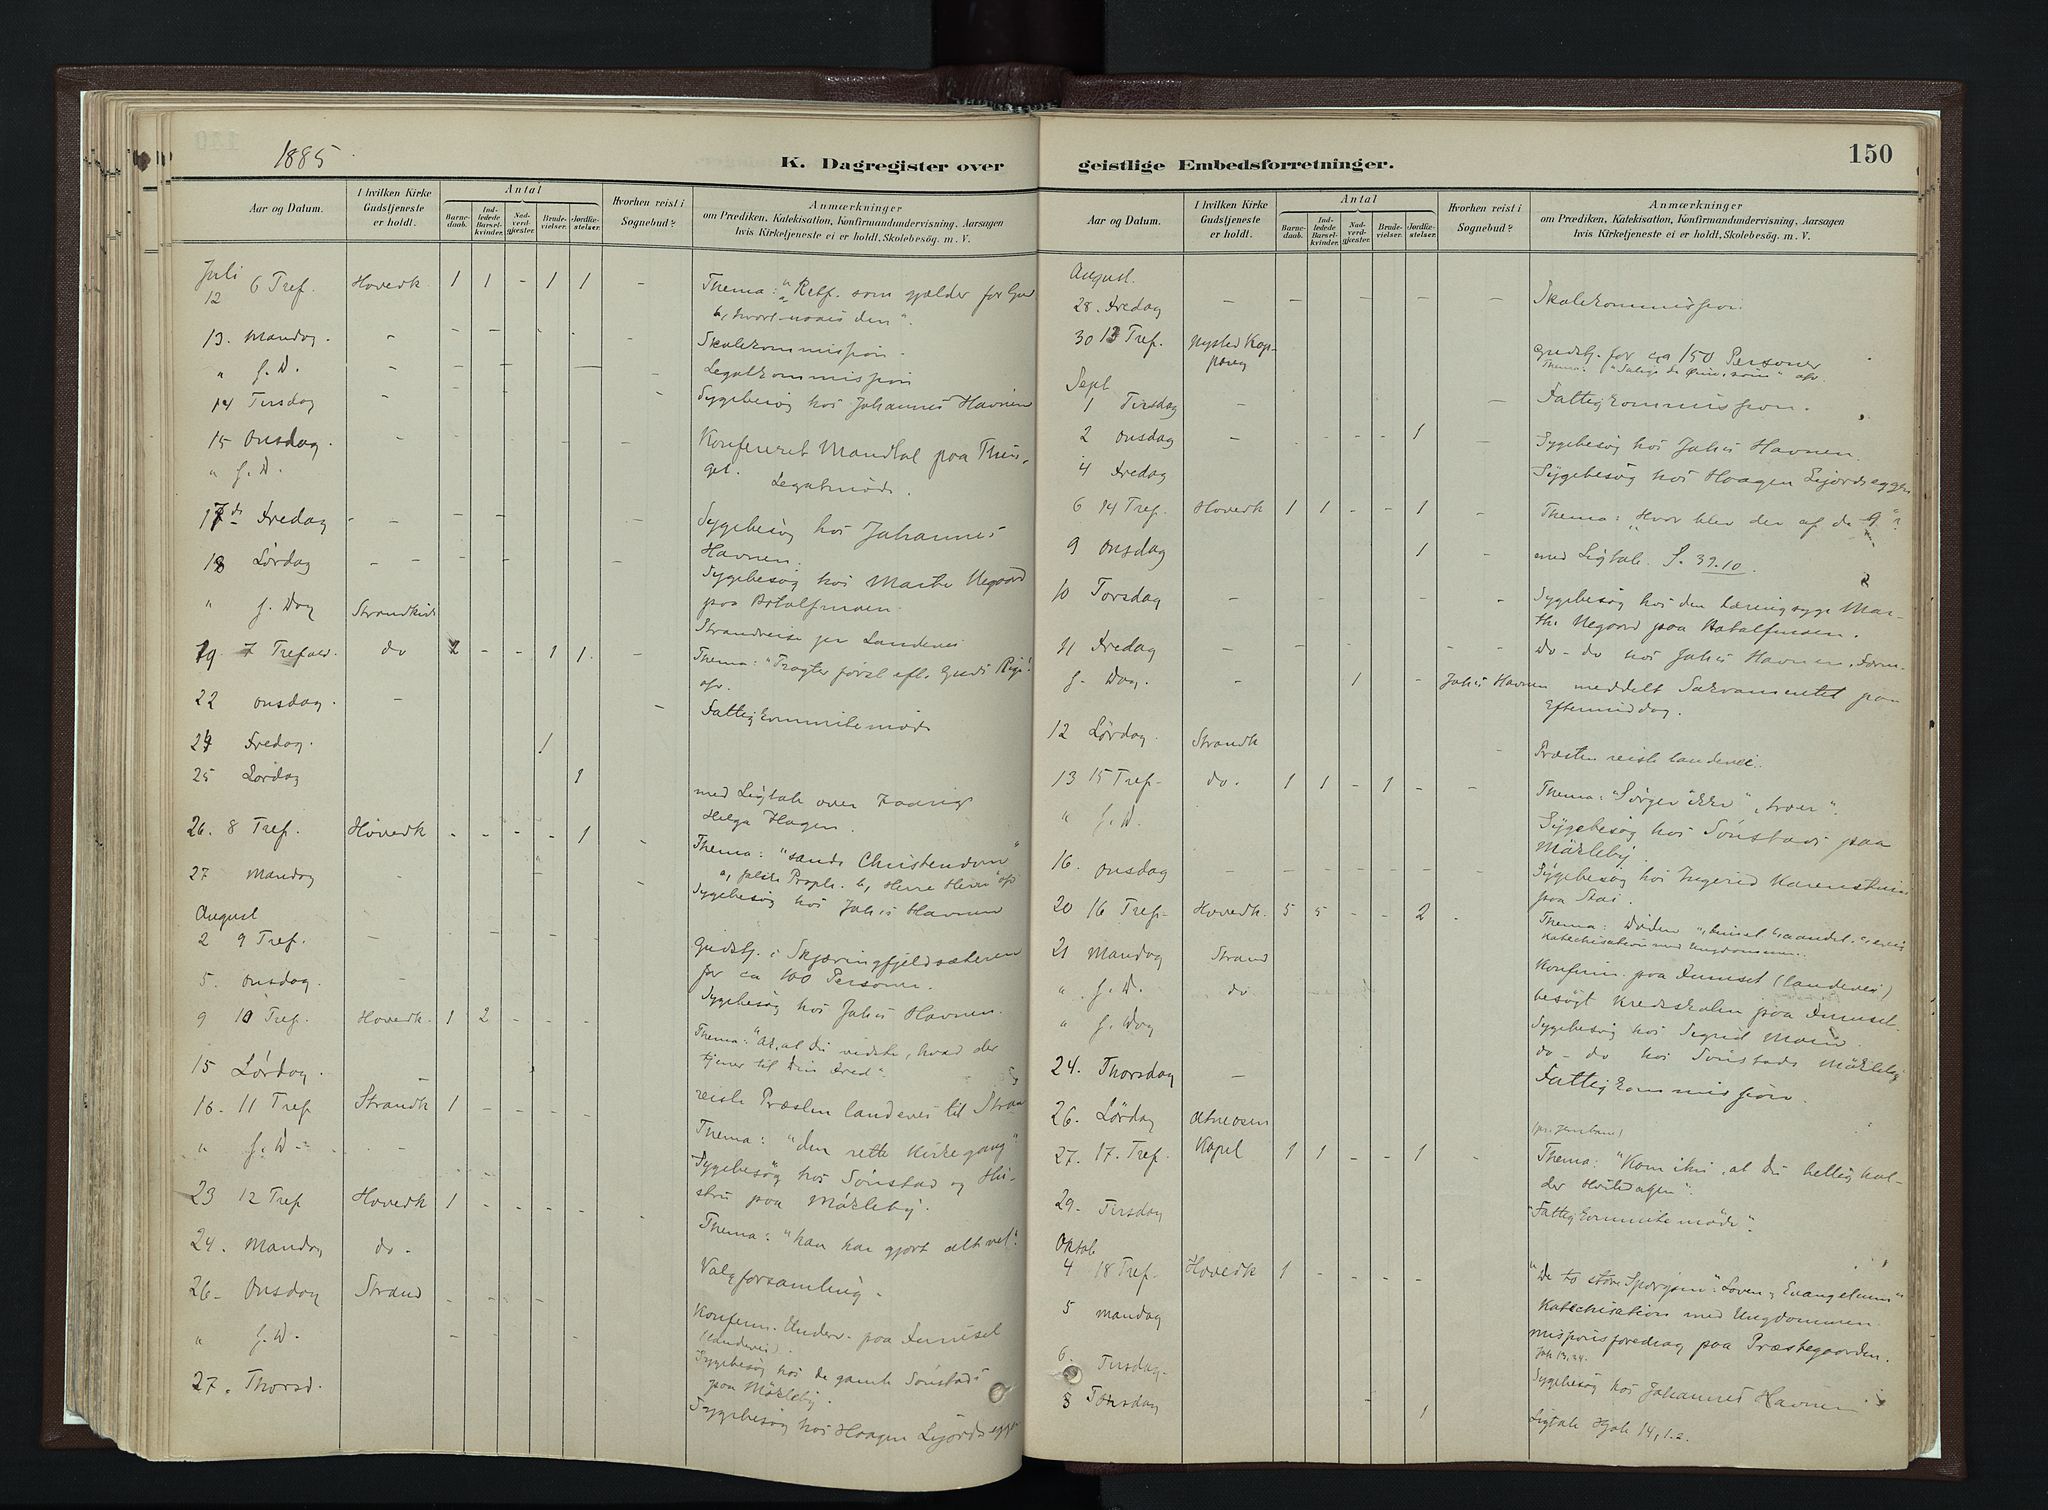 1885
K. Dagregister over
Aar og Datum.
I hvilken Kirke
Gudstjeneste
er holdt.
Antal
Barne-
daab.
Ind-
ledede
Barsel-
kvinder.
Nad-
verd-
gjester.
Brude-
vielser.
Jordfæ-
stelser.
Hvorhen reist i
Sognebud?
Anmærkninger
om Prædiken, Katekisation, Konfirmandundervisning, Aarsagen
hvis Kirketjeneste ei er holdt, Skolebesög. m. V.
Juli
12 6 Tref. Hovedk. 1 1 - 1 1 - Thema: "Retf. som gjælder for Gud
13. Mandag. Skolekommission.
" s. D. Legatkommission
14 Tirsdag Sygebesøg hos Johannes Havnen
15 Onsdag. Konfereret Mandtal paa Thin-
" s. D. get. Legatmøde.
17de Fredag Sygebesøg hos Johannes
Havnen.
18 Lørdag Sygebesøg hos Marthe Negaard
paa
" s. Dag Strandkirke Strandreise per Landevei
19. 7 Trefold. do 2 - - 1 1. - Thema: "Tragter først eft. Guds Rige!
22 onsdag. Fattigkommitemøde
24 Fredag. 1
25 Lørdag 1 med Ligtale over
Helga Hagen.
26. 8 Tref. Hovedk - - - - 1 - Thema: "sande Christendom"
27 Mandag Sygebesøg hos Johs Havnen
August
2 9 Tref. Gudstj. i Skjæringfjeldsæteren
for ca 100 Personer.
5. onsdag. Sygebesøg hos Johs Havnen.
9 10 Tref. Hovedk. 1 2 - - - Thema: "Ak, at Du vidste, hvad der
tjener til Din Fred".
15 Lørdag. reiste Præsten landevei til Strand
16. 11 Tref Strandk 1 - - - - Thema: "den rette Kirkegang"
" s. D. Sygebesøg hos Sønstad og Hu-
stru paa Mörkeby.
23 12 Tref Hovedk 1 - - - - Thema: "han har gjort alt vel".
24. Mandag do - Valgforsamling.
26 - Onsdag Strand Konfirm. Underv. paa
(landevei).
" s. D. Sygebesøg hos de gamle Sönstads
paa Mörkeby.
27. Thorsd. Sygebesøg hos Haagen
geistlige Embedsforretninger.
150
Aar og Datum.
I hvilken Kirke
Gudstjeneste
er holdt.
Antal
Barne-
daab.
Ind-
ledede
Barsel-
kvinder.
Nad-
verd-
gjester.
Brude-
vielser.
Jordfæ-
stelser.
Hvorhen reist i
Sognebud?
Anmærkninger
om Prædiken, Katekisation, Konfirmandundervisning, Aarsagen
hvis Kirketjeneste ei er holdt, Skolebesög. m. V.
August.
28. Fredag Skolekommission
30 13 Tref. Gudstj. for ca 150 Personer
Sept
1 Tirsdag Fattigkommission.
2 onsdag 1 Sygebesøg hos Johs Havnen.
4 Fredag Sygebesøg hos Haagen
6 14 Tref. Hovedk 1 1 - - 1 - Thema: "Hvor blev der af de 9"?
9 onsdag 1 - med Ligtale. S. 39.10.
10 Torsdag Sygebesøg hos den tæringssyge Mar-
the Negaard paa
11 Fredag do - do hos Johs Havnen. Form.
s. Dag. 1 Johs Havnen meddelt Sacramentet paa
Eftermiddag.
12 Lørdag. Strandk Præsten reiste landevei.
13 15 Tref- do. 1 1 - 1 - - Thema: "Sørger ikke"
" s. D. Sygebesøg hos Sönstads paa
Mörkeby.
16. onsdag Sygebesøg hos Ingerid
paa Stai.
20 16 Tref- Hovedk. 5 5 - - 2 - Thema: Døden
Katechisation med Ungdommen.
21 Mandag Strand Konfirm. paa (landevei)
" s. D. do besøgt Kredsskolen paa
" s. Dag Sygebesøg hos Sigrid Moen.
do - do hos Sönstads Mörkeby
24. Thorsdag Fattigkommission.
26. Lørdag Atneosen (pr. Jernbane)
27. 17. Tref. Kapel 1 1 - - 1 - Thema: "Kom ihu, at Du hellig hol-
der Hviledagen".
29. Tirsdag "Fattigkommitemøde".
Oktob
4 18 Tref. Hovedk 1 - - - - "De to store Spørgsm": Loven og Evangelium"
Katechisation med Ungdommen.
5 mandag missionsforedrag paa Præstegaarden.
6. Tirsdag. Sygebesøg hos Johannes Havnen
8 Torsdag 1 Ligtale Joh 14, 1.2.